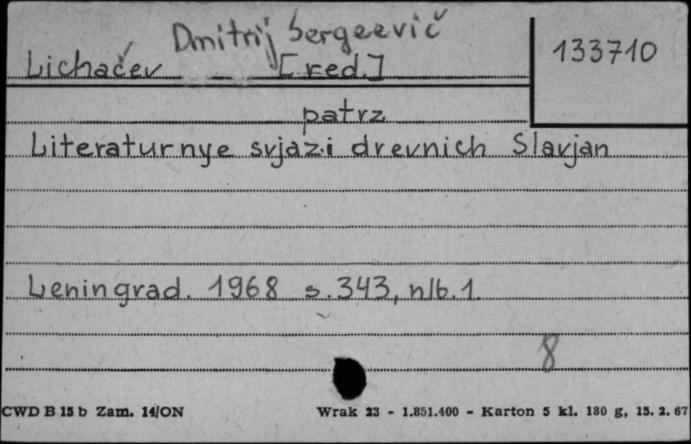 Dmitrij Sergeevič
133710
Lichačev [red.]
patrz
Literaturnye svjazi drevnich Slavjan
Leningrad. 1968 s. 343, nlb. 1.
8
CWD B 15 b Zam. 14/ON Wrak 23 - 1.851.400 - Karton 5 kl. 180 g, 15. 2. 67